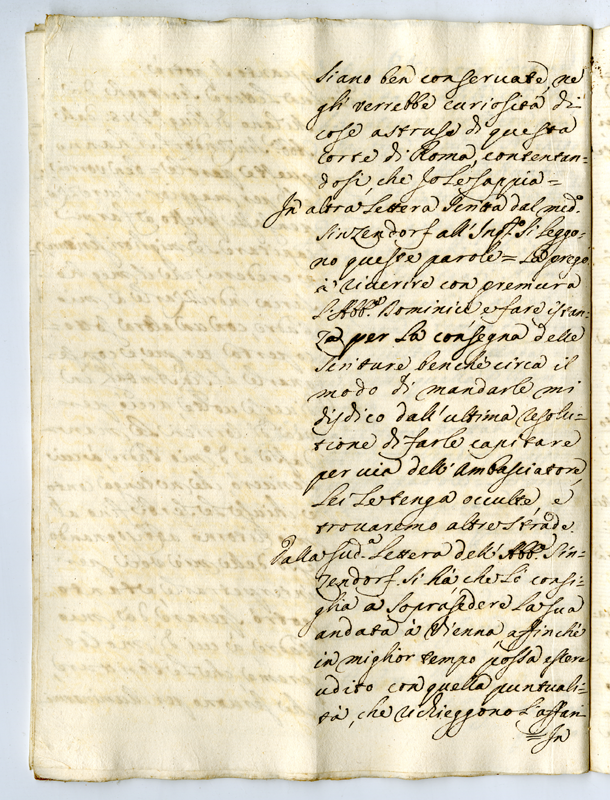 siano ben conservate, ne
gli verrebbe curiosità di
cose astruse di questa
Corte di Roma, contentan=
dosi, che Jo le sappia=
Jn altra Lettera scritta dal med.º
Sinzendorf all' Inf.to si leggo=
no queste parole= La prego
à riverire con premura
L'Abb.e Dominici e fare istan=
za per la consegna delle
scritture benche circa il
modo di mandarle mi
disdico dall' ultima resolu=
tione di farle capitare
per via dell' Ambasciatore,
Lei le tenga occulte, e
trovaremo altre strade
Dalla sud.a Lettera dell' Abb.e Sin=
zendorf si hà che Lo consi=
glia a soprasedere la sua
andata à Vienna affinche
in miglior tempo possa essere
udito con quella puntuali=
tà, che richieggono l'affari
=Jn